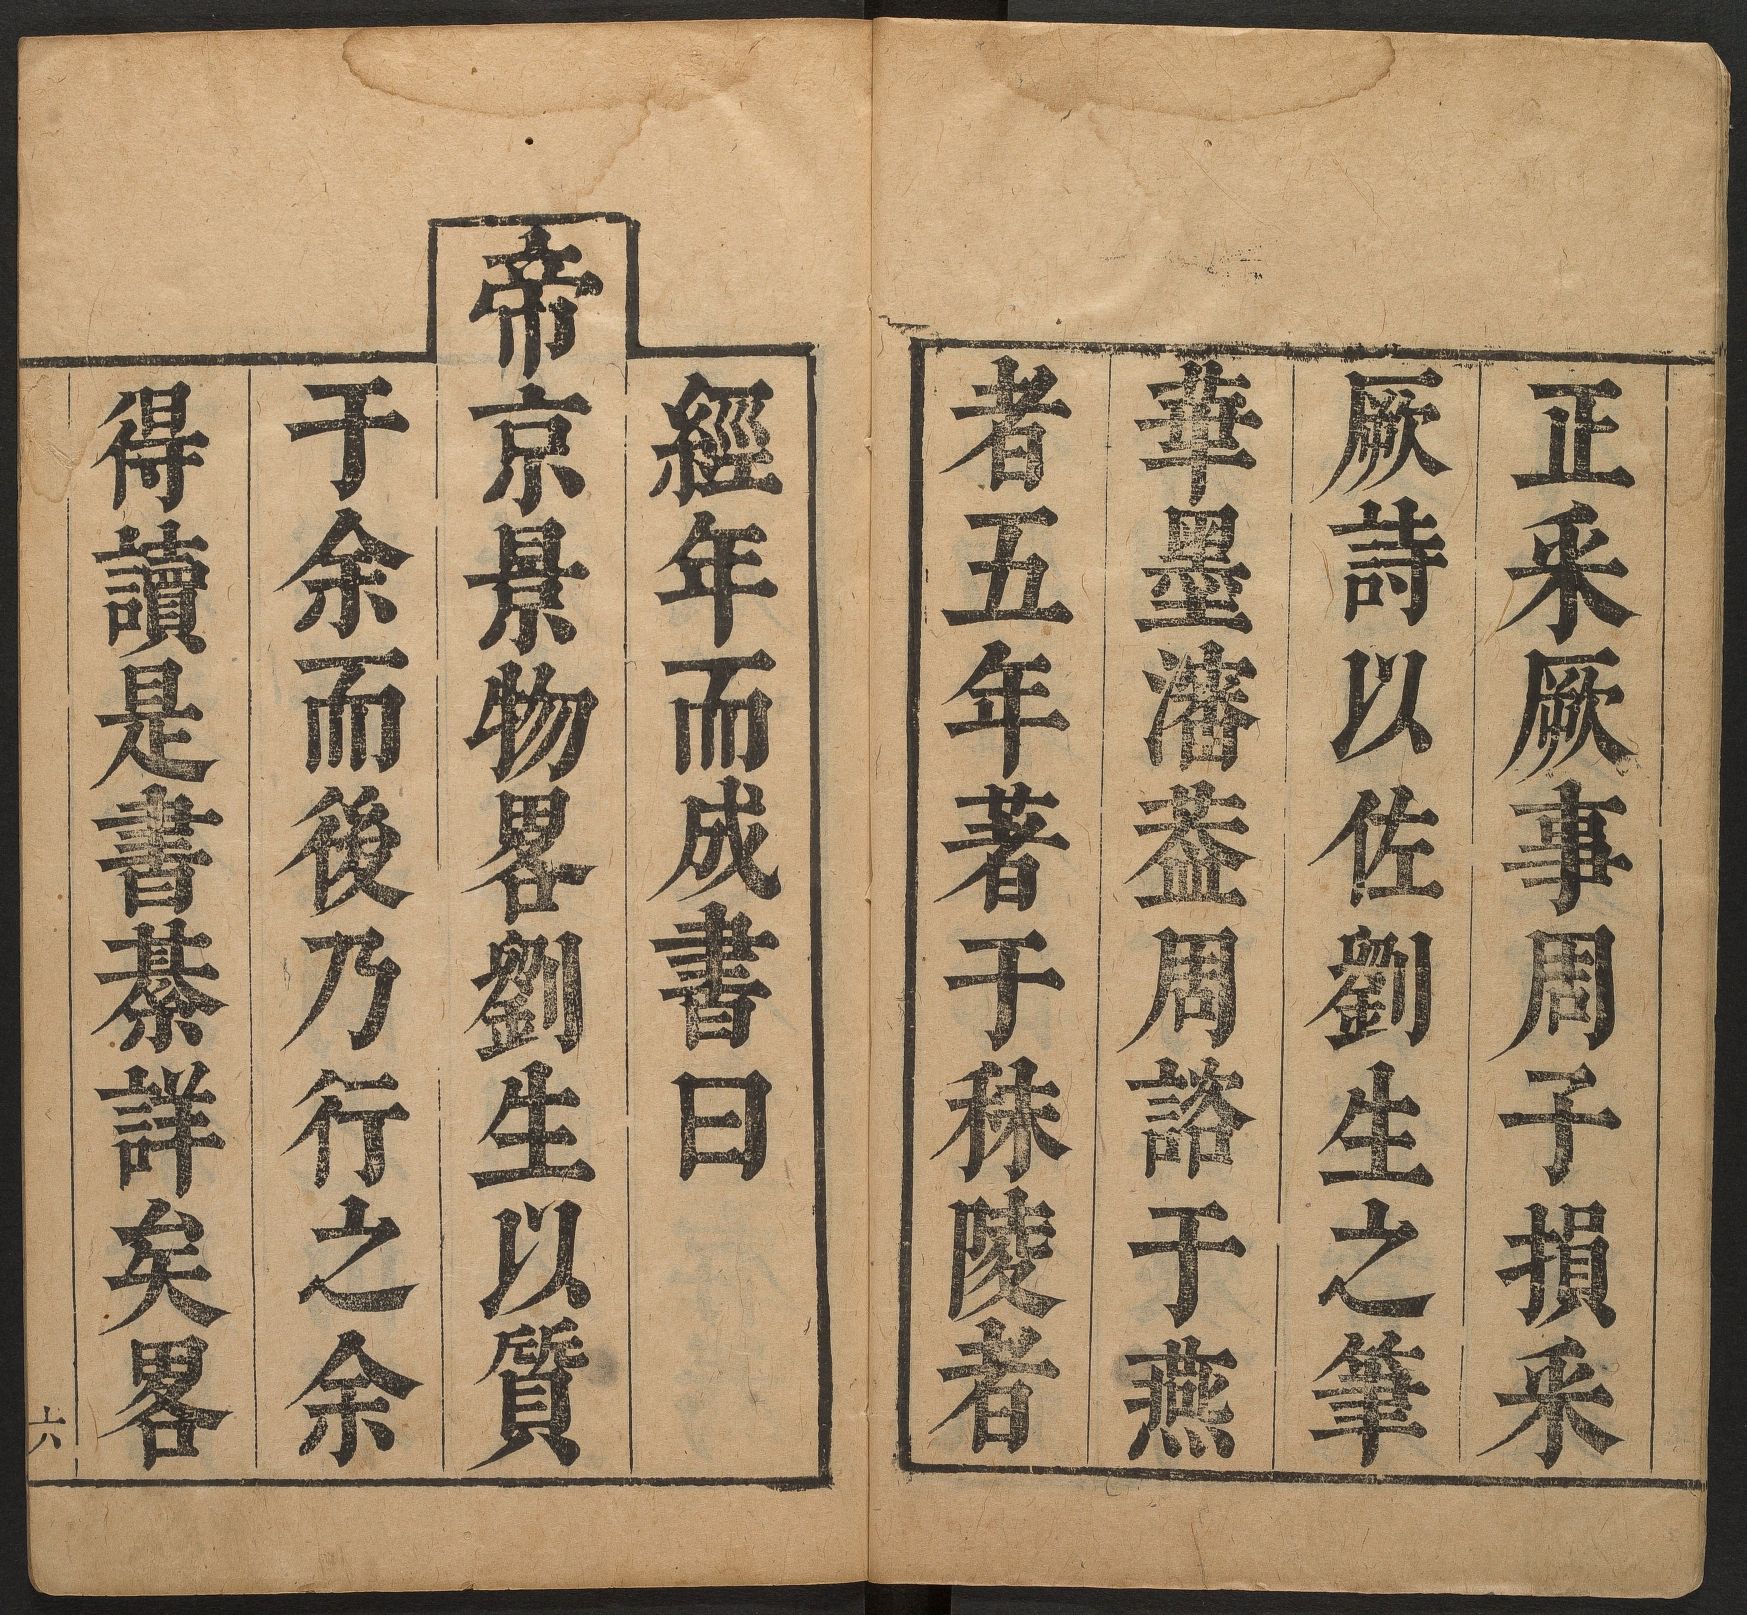 正采厥事周子損采
厥詩以佐劉生之筆
華墨瀋葢周諮于燕
者五年著于秣陵者
經年而成書曰
帝京景物畧劉生以質
于余而後乃行之余
得讀是書綦詳矣畧
六